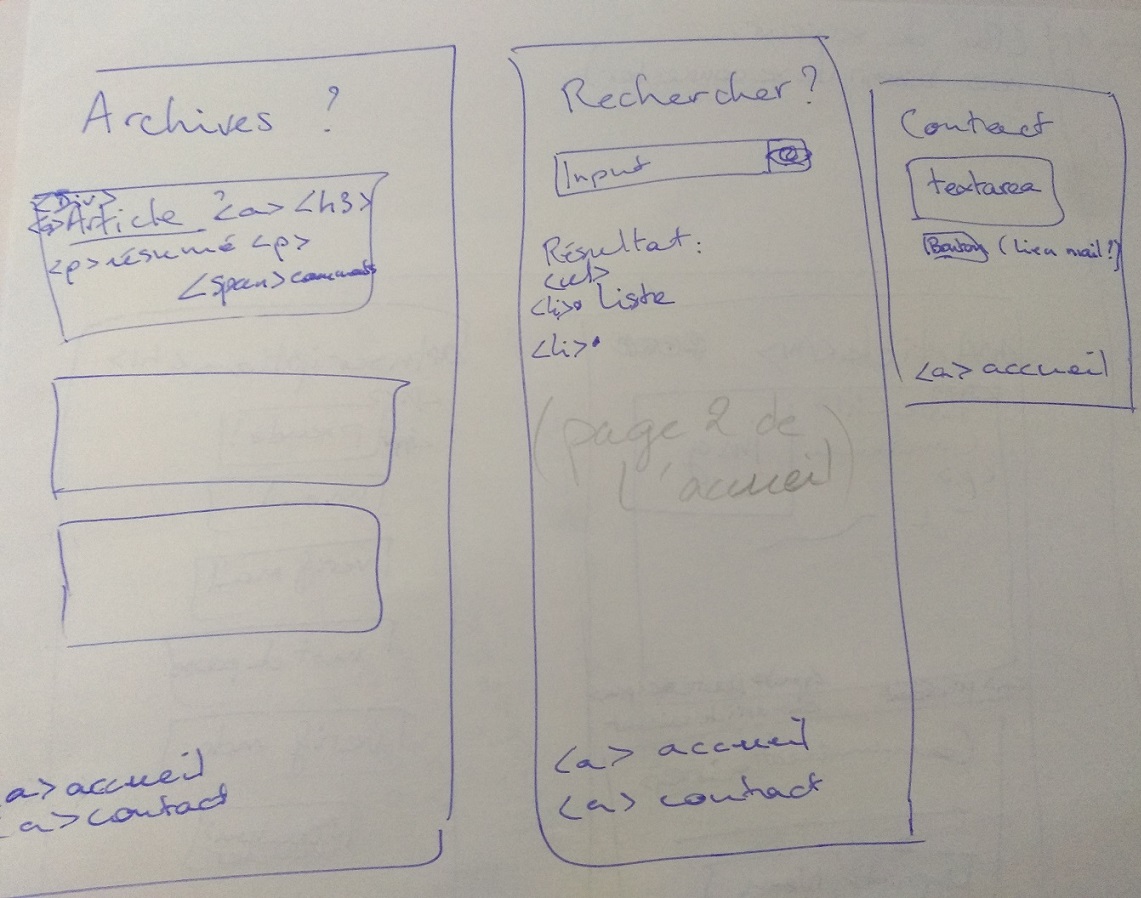 Archives ?
<Div>
<a>Article ?<a> <h3>
<p>résumé <p>
<span>comments
<a> accueil
<a> contact
Rechercher ?
Input
Résultat :
<ul>
<li>• liste
<li>•
(page 2 de
l'accueil)
<a> accueil
<a> contact
Contact
textarea
Bouton (lien mail ?)
<a> accueil